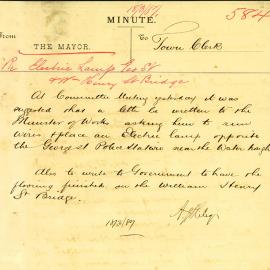 18/3/19
584
MINUTE.
From
To
THE MAYOR.
Town Clerk
Re Electric Lamp Geo St
& Wm Henry St Bridge
At Committee Meeting yesterday it was
suggested that a letter be written to the
Minister of Works asking him to run
wires & place an Electric Lamp opposite
the George St Police Station near the Water
Also to write to Government to have the
flooring finished on the William Henry
St Bridge.